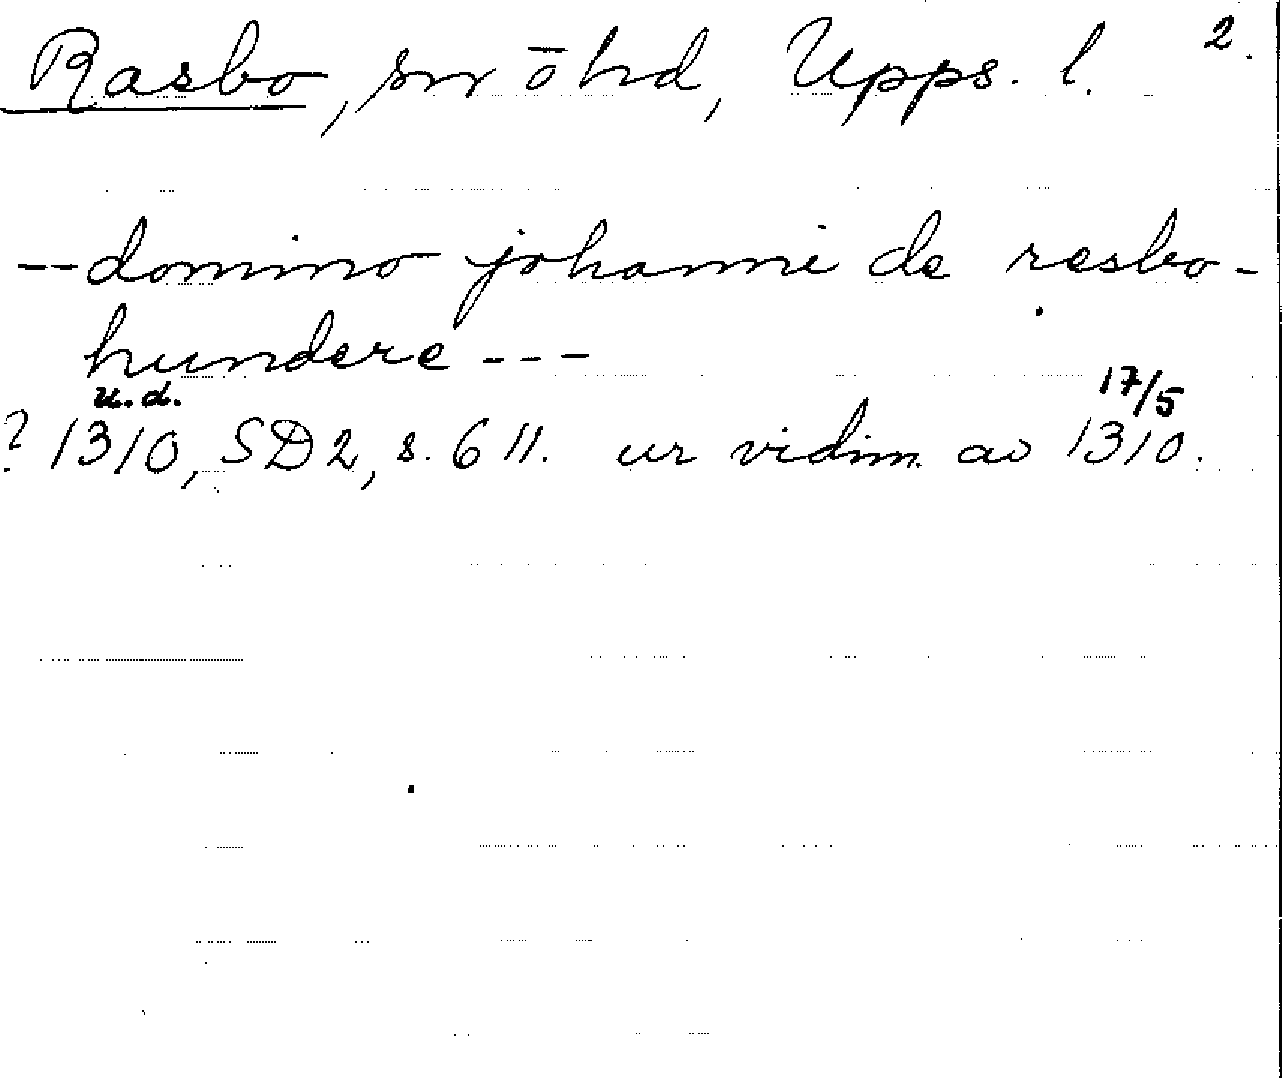 Rasbo, sn o hd, Upps. l. 2.
--domino johanni de rasbo-
hundere ---
u.d. 17/5
? 1310, SD2, s. 611. ur vidim. av 1310.